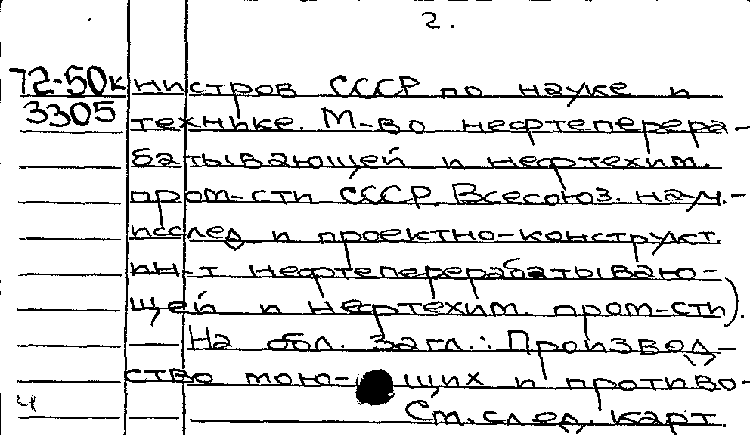 2.
72-50к нистров СССР по науке и
3305 технике. М-во нефтеперера-
батывающей и нефтехим.
пром-сти СССР. Всесоюз. науч.-
исслед. и проектно-конструкт.
ин-т нефтеперерабатываю-
щей и нефтехим. пром-сти).
На обл. загл.: Производ-
ство мою- щих и противо-
4 См. след. карт.